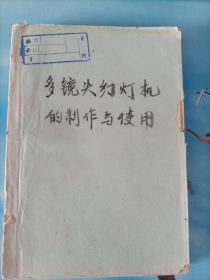 多镜头幻灯机
的制作与使用